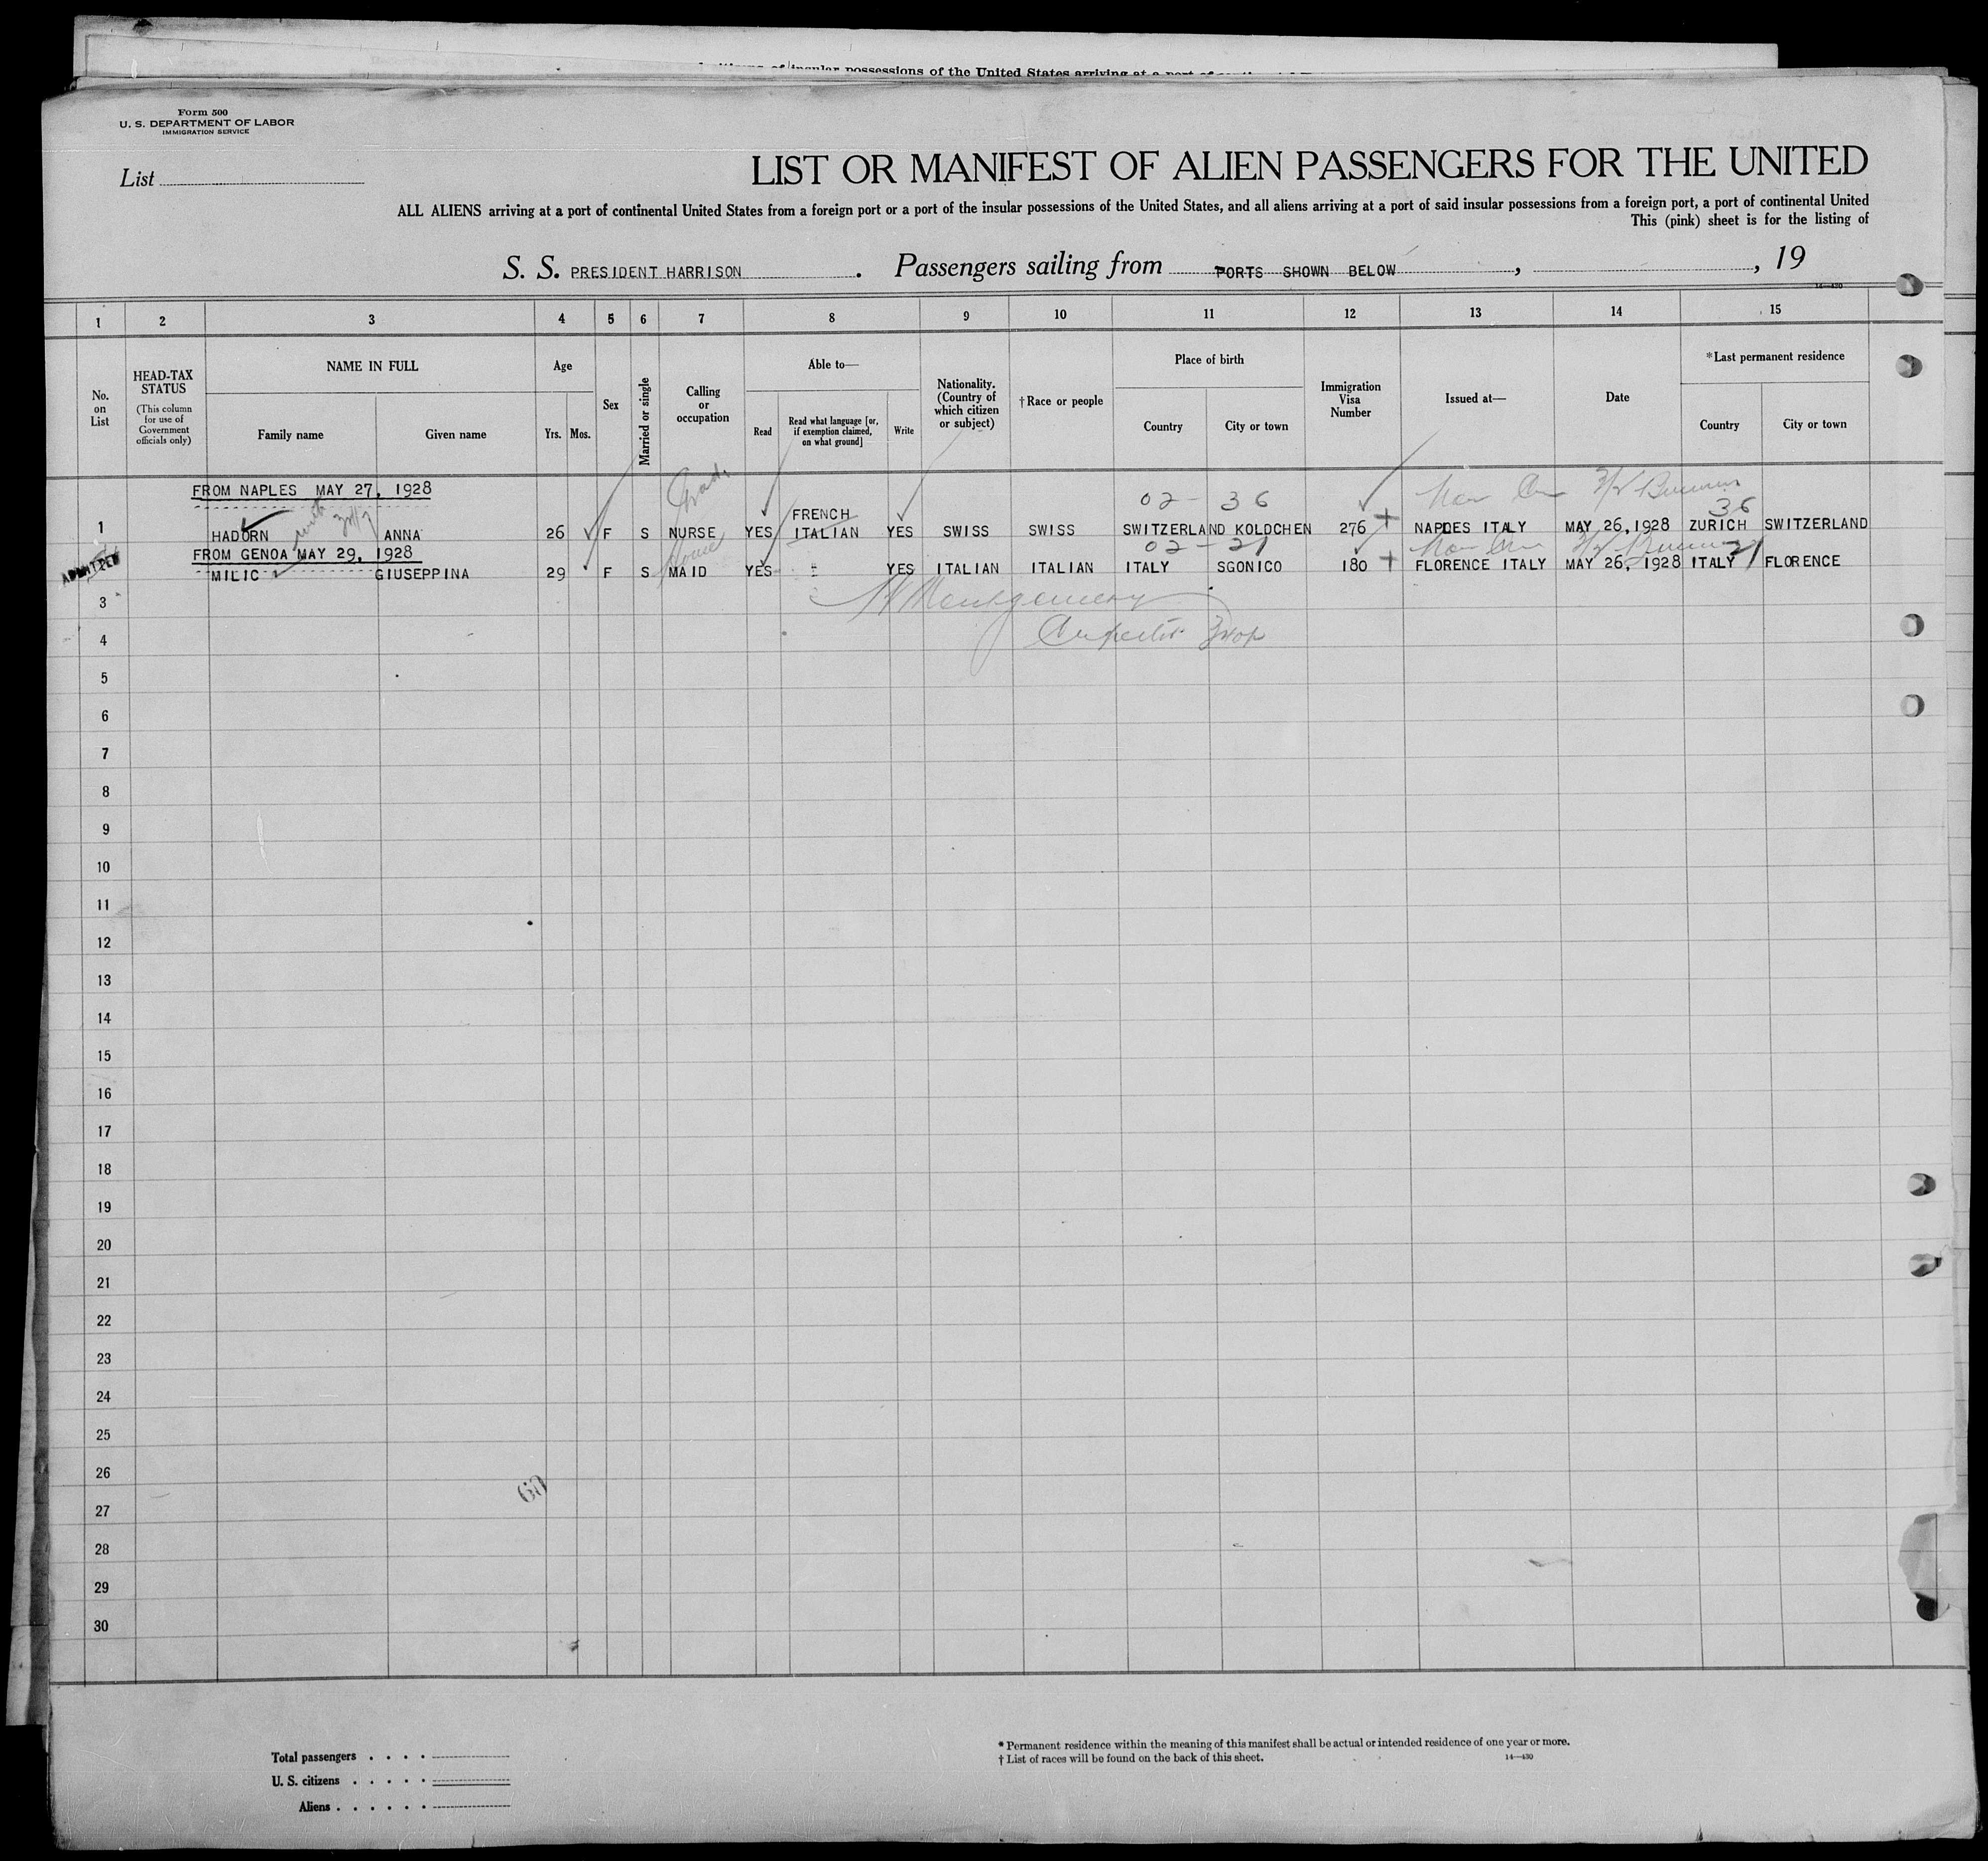 itizens of insular possessions of the United States arriving at a port of
Form 500
U. S. DEPARTMENT OF LABOR
IMMIGRATION SERVICE
List
LIST OR MANIFEST OF ALIEN PASSENGERS FOR THE UNITED
ALL ALIENS arriving at a port of continental United States from a foreign port or a port of the insular possessions of the United States, and all aliens arriving at a port of said insular possessions from a foreign port, a port of continental United
This (pink) sheet is for the listing of
S. S. PRESIDENT HARRISON. Passengers sailing from PORTS SHOWN BELOW, , 19
14—430
1 2 3 4 5 6 7 8 9 10 11 12 13 14 15
No. on List
HEAD-TAX STATUS
(This column for use of Government officials only)
NAME IN FULL
Family name
Given name
Age
Yrs.
Mos.
Sex
Married or single
Calling or occupation
Able to—
Read
Read what language [or, if exemption claimed, on what ground]
Write
Nationality. (Country of which citizen or subject)
†Race or people
Place of birth
Country
City or town
Immigration Visa Number
Issued at—
Date
*Last permanent residence
Country
City or town
FROM NAPLES MAY 27, 1928
02 - 36
36
FRENCH
1 HADORN ANNA 26 F S NURSE YES ITALIAN YES SWISS SWISS SWITZERLAND KOLOCHEN 276 NAPLES ITALY MAY 26, 1928 ZURICH SWITZERLAND
FROM GENOA MAY 29, 1928
02 - 21
21
ADMITTED
MILIC GIUSEPPINA 29 F S MAID YES " YES ITALIAN ITALIAN ITALY SGONICO 180 FLORENCE ITALY MAY 26, 1928 ITALY FLORENCE
Montgomery
3
4
5
6
7
8
9
10
11
12
13
14
15
16
17
18
19
20
21
22
23
24
25
26
60
27
28
29
30
Total passengers . . . .
U. S. citizens . . . . .
Aliens . . . . . .
* Permanent residence within the meaning of this manifest shall be actual or intended residence of one year or more.
† List of races will be found on the back of this sheet.
14—430